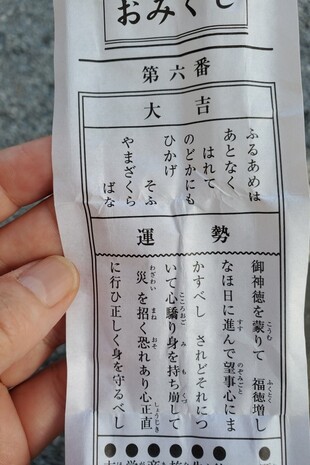 おみくじ
第六番
大吉
ふるあめは
あとなく
はれて
のどかにも
ひかげ
そふ
やまざくら
ばな
運勢
御神徳を蒙りて　福徳増し
なほ日に進んで望事心にま
かすべし　されどそれにつ
いて心驕り身を持ち崩して
災を招く恐れあり心正直
に行ひ正しく身を守るべし